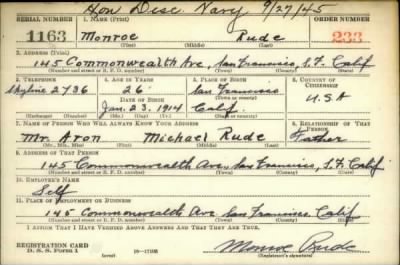 Hon Disc Navy 9/27/45
SERIAL NUMBER 1. NAME (Print) ORDER NUMBER
1163 Monroe Rude 233
(First) (Middle) (Last)
2. ADDRESS (Print)
145 Commonwealth Ave, San Francisco, S.F. Calif
(Number and street or R. F. D. number) (Town) (County) (State)
3. TELEPHONE 4. AGE IN YEARS 5. PLACE OF BIRTH 6. COUNTRY OF CITIZENSHIP
Skyline 2736 26 San Francisco
DATE OF BIRTH (Town or county) U.S.A
Jan. 23, 1914 Calif.
(Exchange) (Number) (Mo.) (Day) (Yr.) (State or country)
7. NAME OF PERSON WHO WILL ALWAYS KNOW YOUR ADDRESS 8. RELATIONSHIP OF THAT PERSON
Mr. Aron Michael Rude Father
(Mr., Mrs., Miss) (First) (Middle) (Last)
9. ADDRESS OF THAT PERSON
145 Commonwealth Ave, San Francisco, S.F. Calif
(Number and street or R. F. D. number) (Town) (County) (State)
10. EMPLOYER'S NAME
Self
11. PLACE OF EMPLOYMENT OR BUSINESS
145 Commonwealth Ave San Francisco Calif
(Number and street or R. F. D. number) (Town) (County) (State)
I AFFIRM THAT I HAVE VERIFIED ABOVE ANSWERS AND THAT THEY ARE TRUE.
REGISTRATION CARD
D. S. S. Form 1 (over) 16—17105 Monroe Rude
(Registrant's signature)